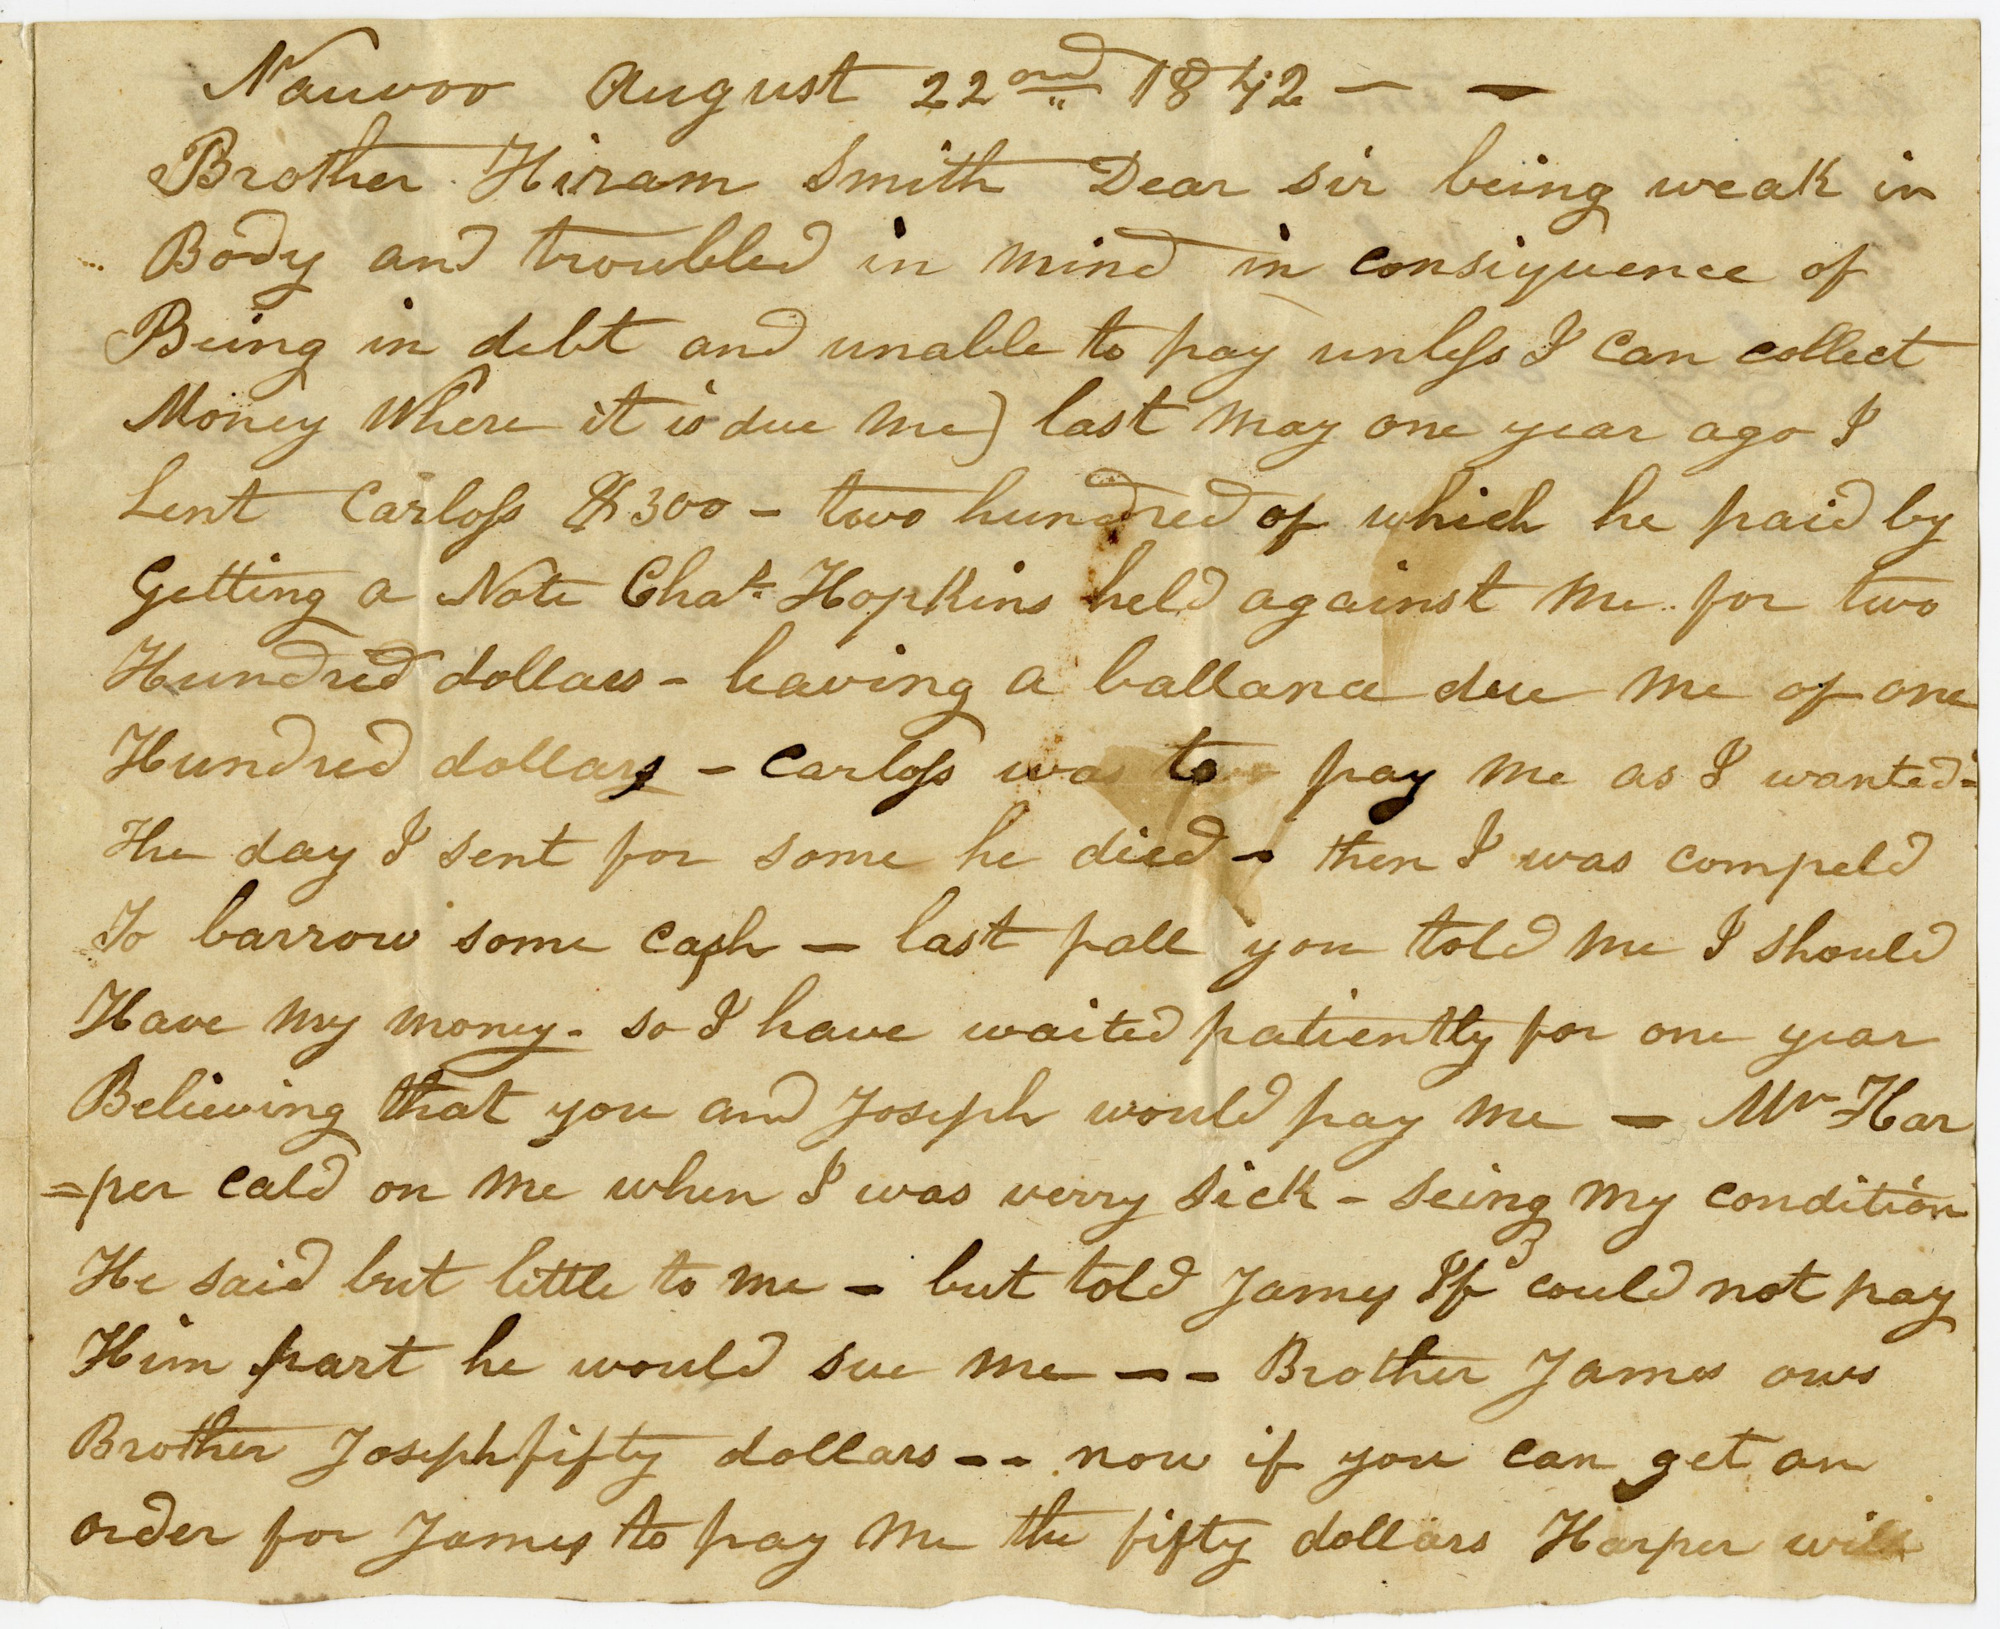 Nauvoo August 22ond 1842 — —
Brother Hiram Smith Dear sir being weak in
Body and troubled in mind in consiquence of
Being in debt and unable to pay unless I can collect
Money Where it is due me) last may one year ago I
Lent Carloss $300 – two hundred of which he paid by
Getting a Note Chas. Hopkins held against me for two
Hundred dollars – leaving a ballance due me of one
Hundred dollars – Carloss was to pay me as I wanted =
The day I sent for some he died – then I was compeld
To barrow some cash – last fall you told me I should
Have my money - so I have waited patiently for one year
Believing that you and Joseph would pay me – Mr Har
=per cald on me when I was verry sick – seing my condition
He said but little to me – but told James If I could not pay
Him part he would sue me – – Brother James ows
Brother Joseph fifty dollars – – now if you can get an
order for James to pay me the fifty dollars Harper will